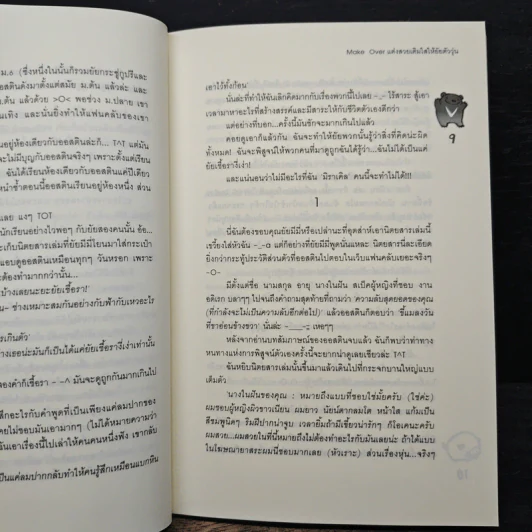 ม.6 (ซึ่งหนึ่งในนั้นก็รวมยัยกระซู่กูปรีและ
สตินดังมาตั้งแต่สมัย ม.ต้น แล้วล่ะ และ
ม.ต้น แล้วด้วย >O< พอช่วง ม.ปลาย เขา
และนั่นยิ่งทำให้แฟนคลับของเขา
ห้องเดียวกับออสตินล่ะก็... T^T แต่มัน
จะไม่มีบุญกับออสตินจริงๆ เพราะตั้งแต่เรียน
ฉันได้เรียนห้องเดียวกับออสตินแค่ปีเดียว
หนำซ้ำตอนนี้ออสตินเรียนอยู่ห้องหนึ่ง ส่วน
เลย แงๆ TOT
นักเรียนอย่างไวพอๆ กับยัยสองคนนั้น อ้อ...
เก็บนิตยสารเล่มที่ยัยมีมี่โยนมาใส่กระเป๋า
แอบดูออสตินเหมือนทุกๆ วันหรอก เพราะ
ต้องทำมากกว่านั้น...
บ้างเลยนะยะยัยเชื้อรา!'
น~ ช่างเหมาะสมกันอย่างกับฟ้ากับเหวอะไร
เกินตัว'
งเธอน่ะมันก็เป็นได้แค่ยัยเชื้อรางี่เง่าเท่านั้น
องคำก็เชื้อรา - -^ มันจะดูถูกกันมากเกินไป
สึกอะไรกับคำพูดที่เป็นเพียงแค่ลมปากของ
คยไม่ชอบมันเอามากๆ (ไม่ได้หมายความว่า
ฉันเอาเรื่องนี้ไปเล่าให้คนคนหนึ่งฟัง เขากลับ
ป็นแค่ลมปากกลับทำให้คนรู้สึกเหมือนแบกหิน
Make Over แต่งสวยเติมใสให้ยัยตัววุ่น
9
เอาไว้ทั้งก้อน'
นั่นล่ะที่ทำให้ฉันเลิกคิดมากกับเรื่องพวกนี้ไปเลย -_- ไร้สาระ สู้เอา
เวลามาหาอะไรที่สร้างสรรค์และมีสาระให้กับชีวิตตัวเองดีกว่า
แต่อย่างที่บอก...ครั้งนี้มันชักจะมากเกินไปแล้ว
คอยดูเอาก็แล้วกัน ฉันจะทำให้ยัยพวกนั้นรู้ว่าสิ่งที่คิดน่ะผิด
ทั้งหมด! ฉันจะพิสูจน์ให้พวกคนที่มาดูถูกฉันได้รู้ว่า...ฉันไม่ได้เป็นแค่
ยัยเชื้อรางี่เง่า!
และแน่นอนว่าไม่มีอะไรที่ฉัน 'มิราเคิล' คนนี้จะทำไม่ได้!!!
1
นี่ฉันต้องขอบคุณยัยมีมี่หรือเปล่านะที่อุตส่าห์เอานิตยสารเล่มนี้
เขวี้ยงใส่หัวฉัน -_-o แต่ก็อย่างที่ยัยมีมี่พูดนั่นแหละ นิตยสารนี่ละเอียด
ยิ่งกว่ากระทู้ประวัติส่วนตัวที่ออสตินไปตอบในเว็บแฟนคลับเยอะจริงๆ
-O-
มีตั้งแต่ชื่อ นามสกุล อายุ นางในฝัน สเป็คผู้หญิงที่ชอบ งาน
อดิเรก บลาๆๆ ไปจนถึงคำถามสุดท้ายที่ถามว่า 'ความลับสุดยอดของคุณ
(ที่กำลังจะไม่เป็นความลับอีกต่อไป)' แล้วออสตินก็ตอบว่า 'ขี้แมลงวัน
ที่ขาอ่อนข้างขวา' นั่นล่ะ -___-; เหอๆๆ
หลังจากอ่านบทสัมภาษณ์ของออสตินจบแล้ว ฉันก็พบว่าท่าทาง
หนทางแห่งการพิสูจน์ตัวเองครั้งนี้จะยากน่าดูเลยเชียวล่ะ T^T
ฉันหยิบนิตยสารเล่มนั้นขึ้นมาแล้วเดินไปที่กระจกบานใหญ่แบบ
เต็มตัว
'นางในฝันของคุณ : หมายถึงแบบที่ชอบใช่มั้ยครับ (ใช่ค่ะ)
ผมชอบผู้หญิงผิวขาวเนียน ผมยาว นัยน์ตากลมโต หน้าใส แก้มเป็น
สีชมพูนิดๆ ริมฝีปากน่าจูบ เวลายิ้มถ้ามีเขี้ยวน่ารักๆ ก็โอเคนะครับ
ผมสวย...ผมสวยในที่นี้หมายถึงไม่ต้องทำอะไรกับมันเลยน่ะ ถ้าได้แบบ
ในโฆษณายาสระผมนี่ชอบมากเลย (หัวเราะ) ส่วนเรื่องหุ่น...จริงๆ